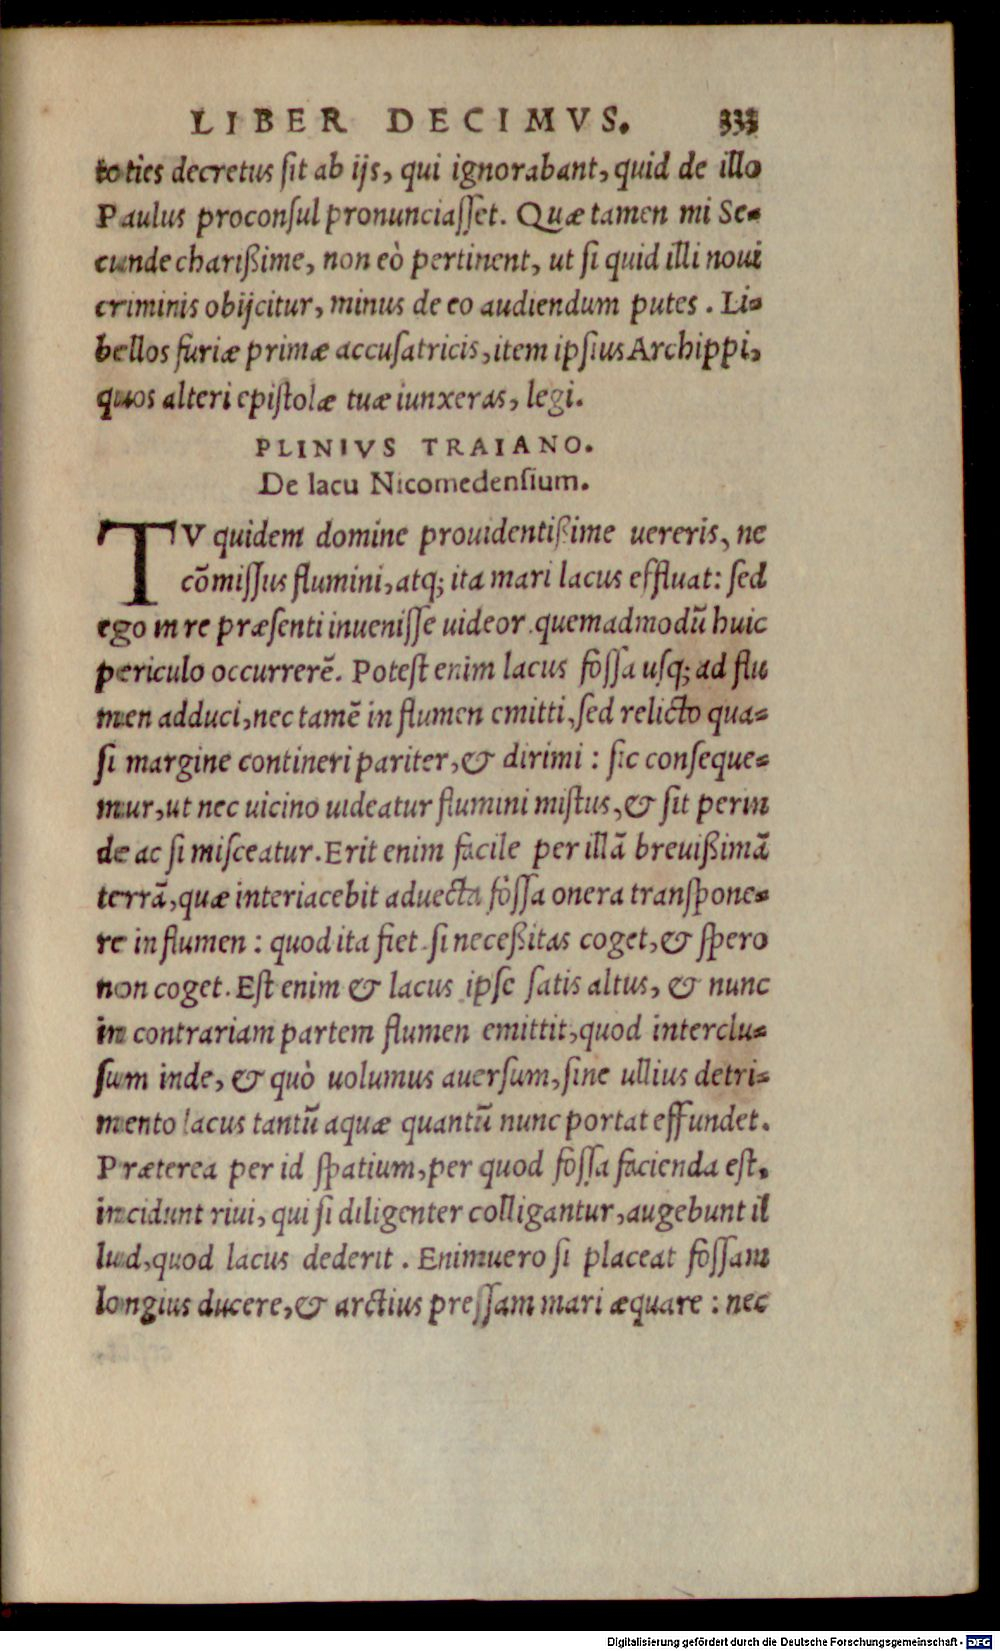 LIBER DECIMVS. 333
toties decretus sit ab ijs, qui ignorabant, quid de illo
Paulus proconſul pronunciaſſet. Quæ tamen mi Se-
cunde charißime, non eò pertinent, ut ſi quid illi noui
criminis obijcitur, minus de eo audiendum putes. Li-
bellos furiæ primæ accuſatricis, item ipſius Archippi,
quos alteri epiſtolæ tuæ iunxeras, legi.
PLINIVS TRAIANO.
De lacu Nicomedenſium.
TV quidem domine prouidentißime uereris, ne
cõmiſſus flumini, atq; ita mari lacus effluat: ſed
ego in re præſenti inueniſſe uideor. quemadmodũ huic
periculo occurrerẽ. Poteſt enim lacus foſſa uſq; ad flu
men adduci, nec tamẽ in flumen emitti, ſed relicto qua-
ſi margine contineri pariter, & dirimi: ſic conſeque-
mur, ut nec uicino uideatur flumini miſtus, & ſit perin
de ac ſi miſceatur. Erit enim facile per illã breuißimã
terrã, quæ interiacebit aduecta foſſa onera tranſpone-
re in flumen: quod ita fiet ſi neceßitas coget, & ſpero
non coget. Eſt enim & lacus ipſe ſatis altus, & nunc
in contrariam partem flumen emittit, quod interclu-
ſum inde, & quò uolumus auerſum, ſine ullius detri-
mento lacus tantũ aquæ quantũ nunc portat effundet.
Præterea per id ſpatium, per quod foſſa facienda eſt,
incidunt riui, qui ſi diligenter colligantur, augebunt il
lud, quod lacus dederit. Enimuero ſi placeat foſſam
longius ducere, & arctius preſſam mari æquare: nec
Digitalisierung gefördert durch die Deutsche Forschungsgemeinschaft - DFG